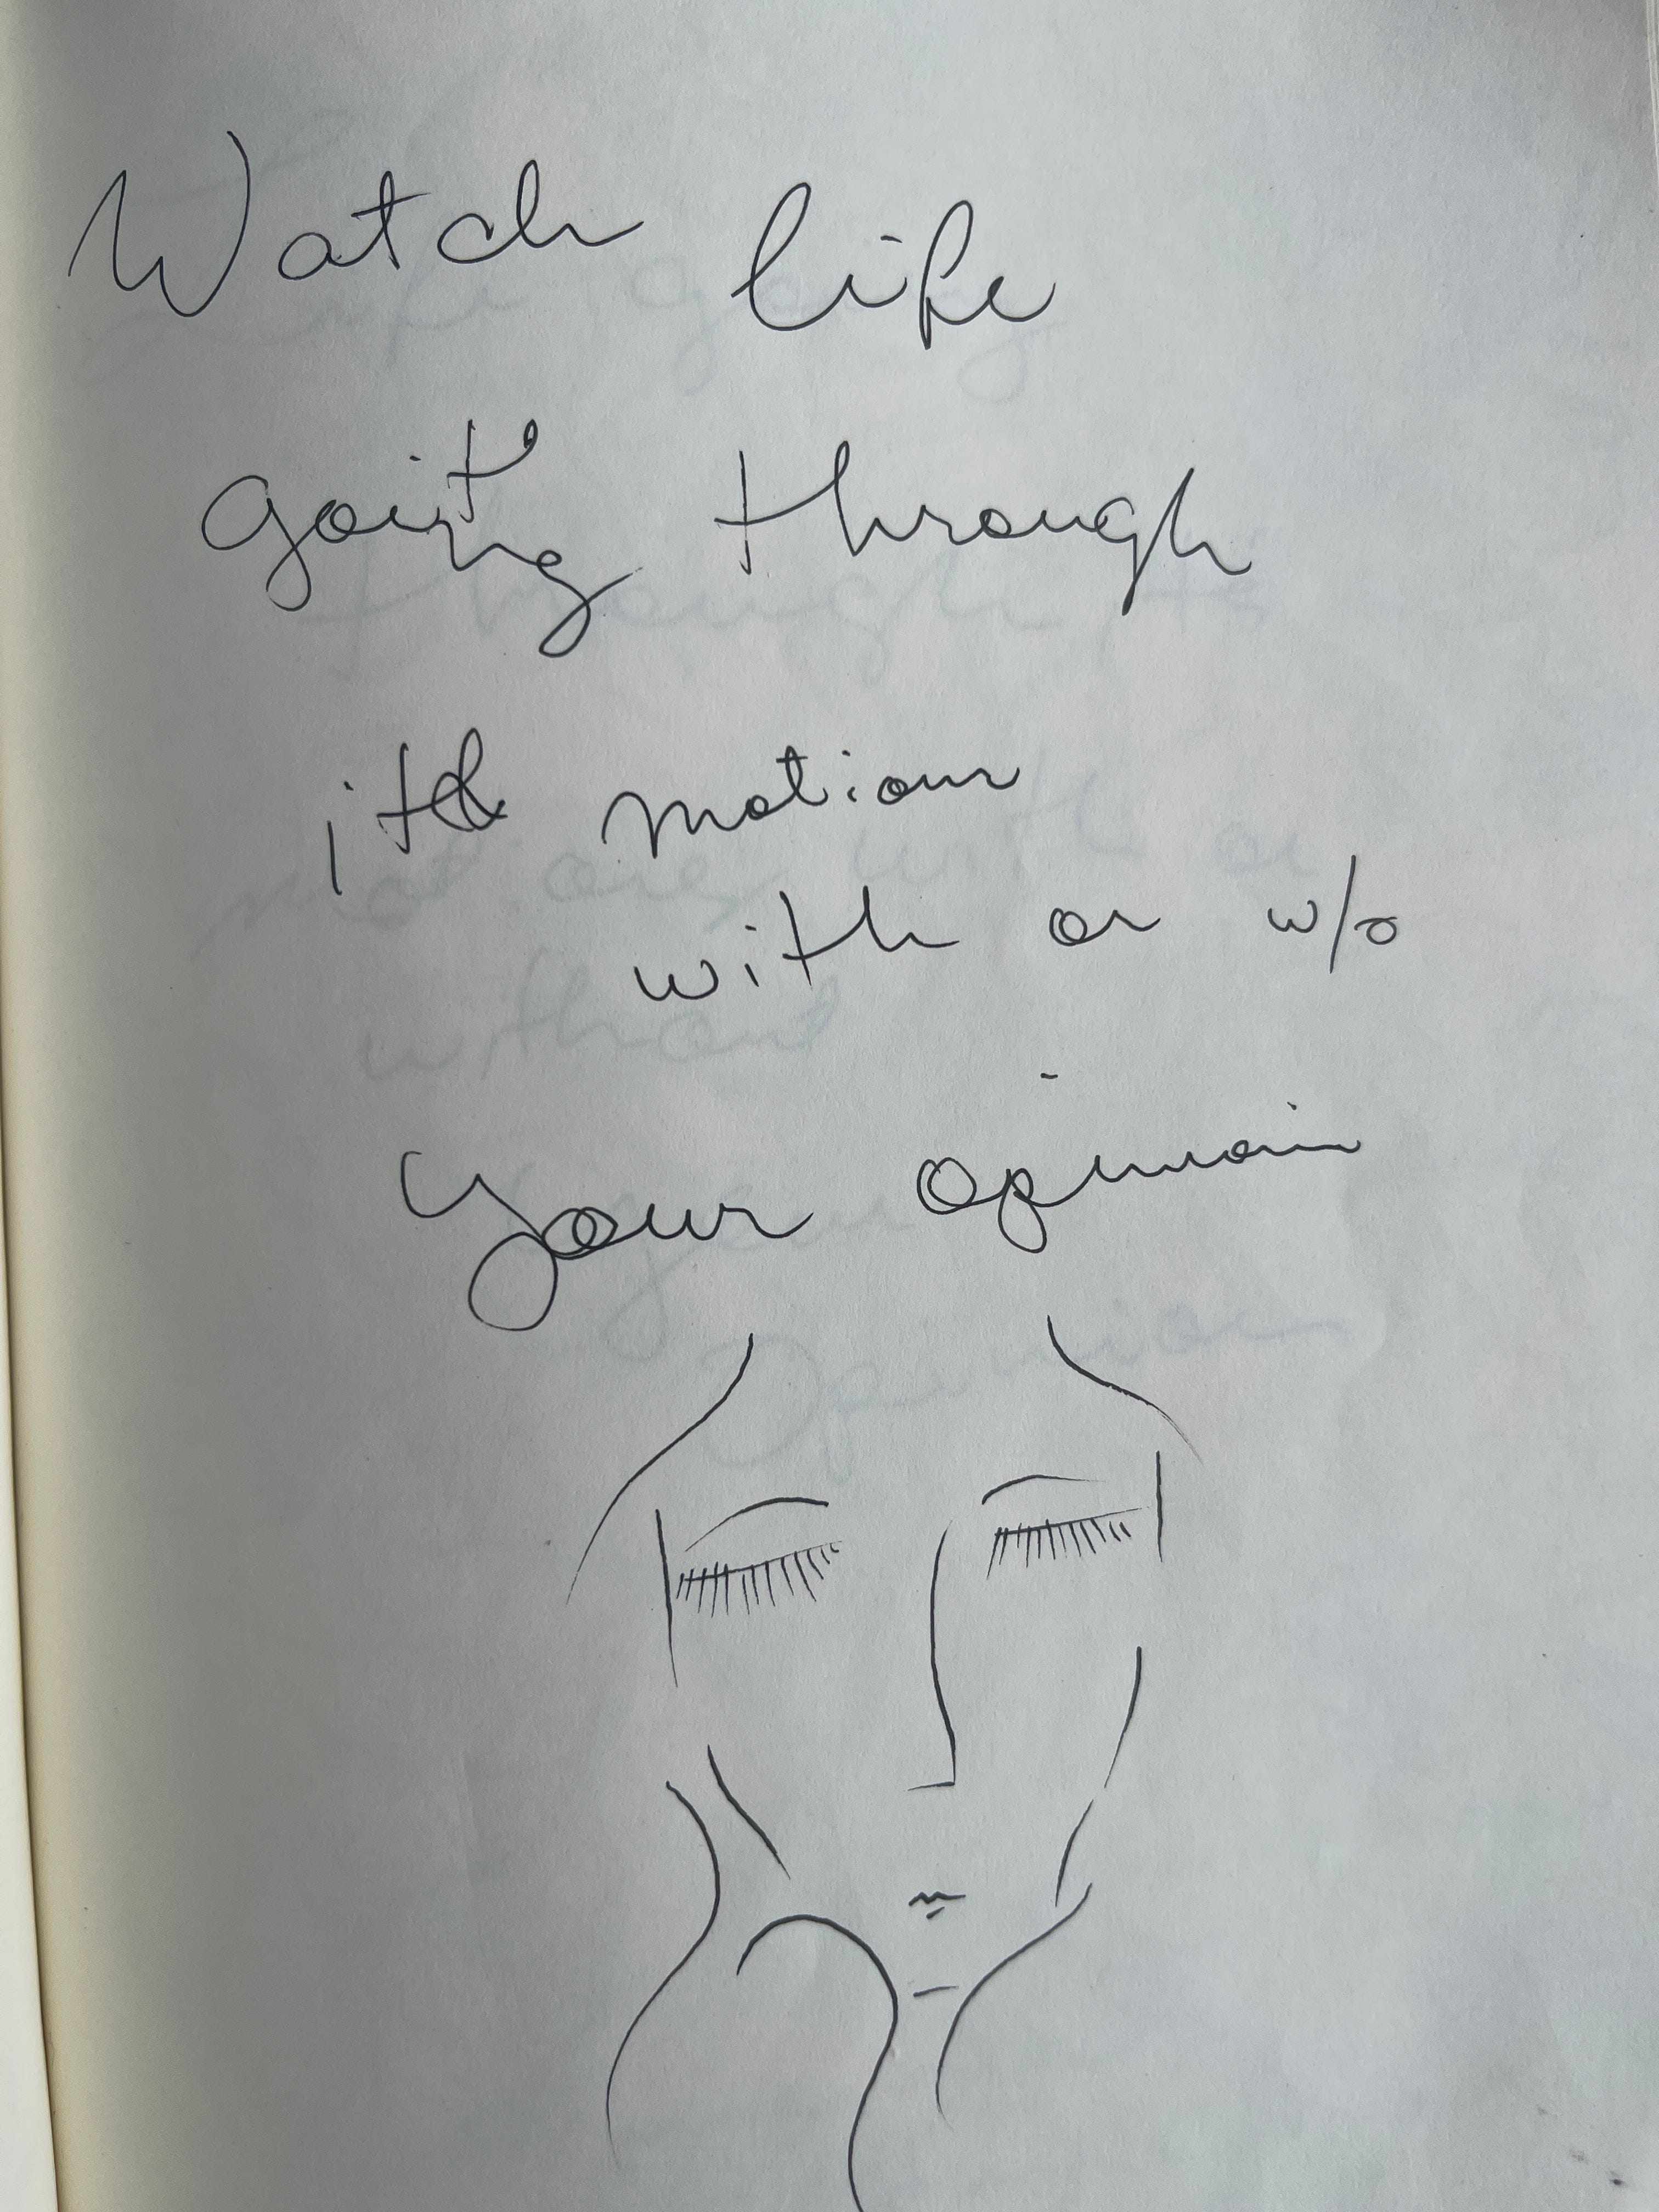 Watch life
going through
its motions
with or w/o
your opinion